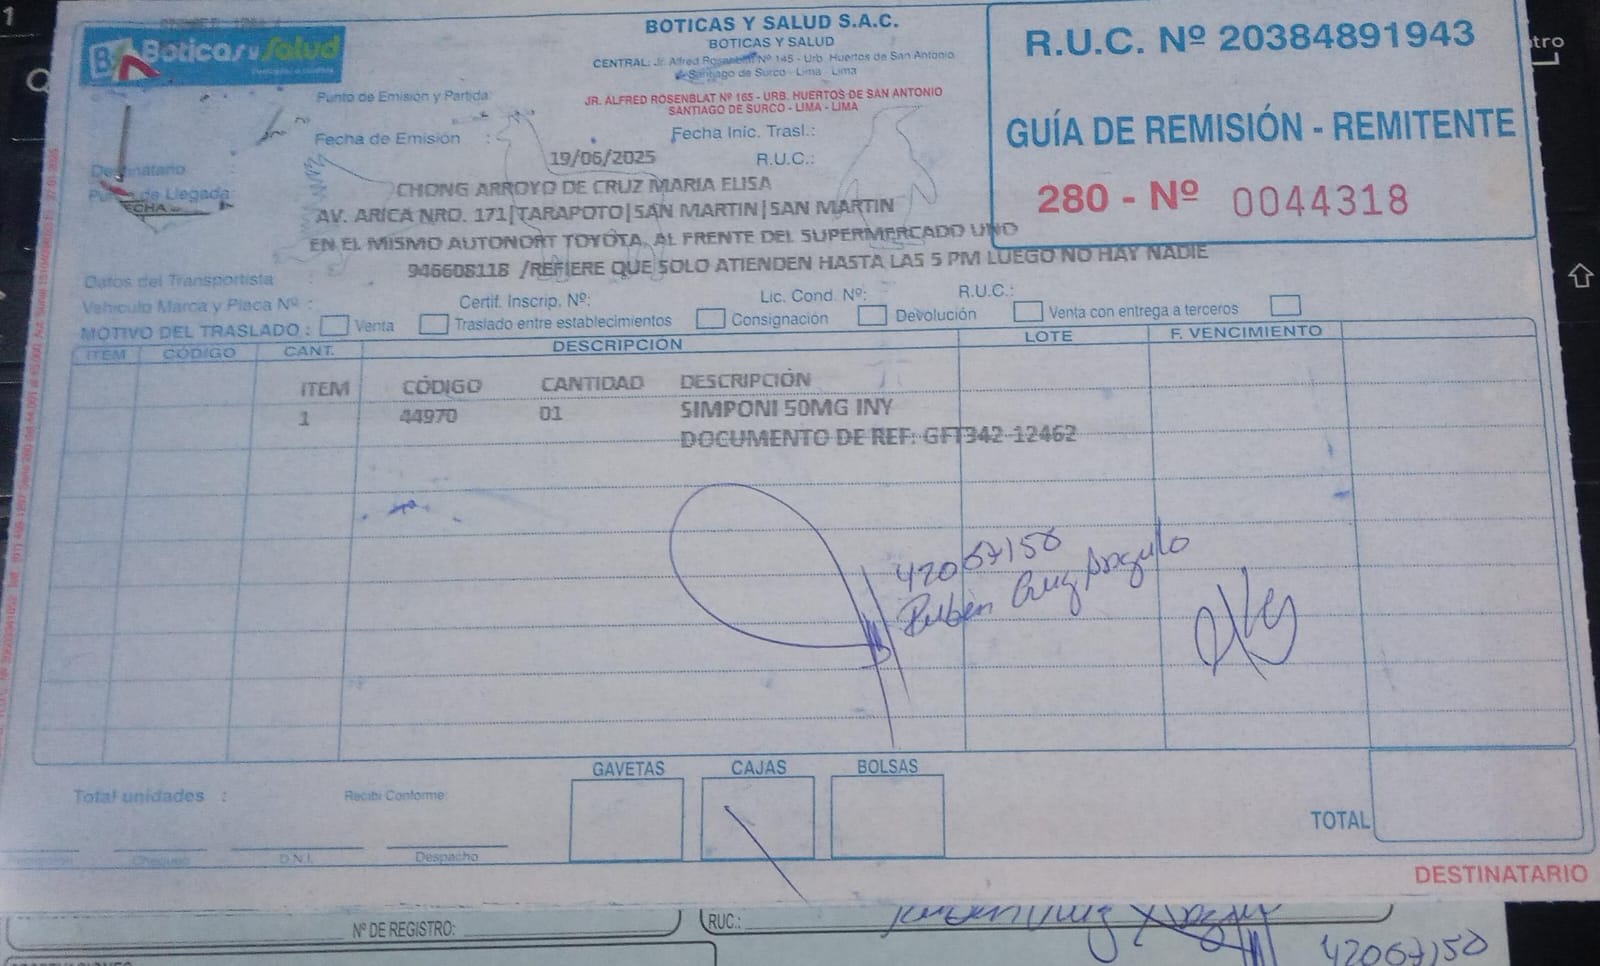 Boticas y Salud
BOTICAS Y SALUD S.A.C.
BOTICAS Y SALUD
CENTRAL: Jr. Alfred Rosenblat Nº 145 - Urb. Huertos de San Antonio
Santiago de Surco - Lima - Lima
JR. ALFRED ROSENBLAT Nº 165 - URB. HUERTOS DE SAN ANTONIO
SANTIAGO DE SURCO - LIMA - LIMA
R.U.C. Nº 20384891943
GUÍA DE REMISIÓN - REMITENTE
280 - Nº 0044318
Punto de Emisión y Partida:
Fecha de Emisión : Fecha Inic. Trasl.:
19/06/2025 R.U.C.:
Destinatario
CHONG ARROYO DE CRUZ MARIA ELISA
Punto de Llegada:
FECHA
AV. ARICA NRO. 171|TARAPOTO|SAN MARTIN|SAN MARTIN
EN EL MISMO AUTONORT TOYOTA, AL FRENTE DEL SUPERMERCADO UNO
946608118 /REFIERE QUE SOLO ATIENDEN HASTA LAS 5 PM LUEGO NO HAY NADIE
Datos del Transportista
Vehiculo Marca y Placa Nº : Certif. Inscrip. Nº: Lic. Cond. Nº: R.U.C.:
MOTIVO DEL TRASLADO : Venta Traslado entre establecimientos Consignación Devolución Venta con entrega a terceros
ITEM CÓDIGO CANT. DESCRIPCIÓN LOTE F. VENCIMIENTO
ITEM CÓDIGO CANTIDAD DESCRIPCIÓN
1 44970 01 SIMPONI 50MG INY
DOCUMENTO DE REF: GFT342-12462
42067150
Ruben Cruz Angulo
GAVETAS CAJAS BOLSAS
Total unidades : Recibi Conforme:
TOTAL
Chequeo D.N.I. Despacho
DESTINATARIO
Nº DE REGISTRO: RUC.:
42067150